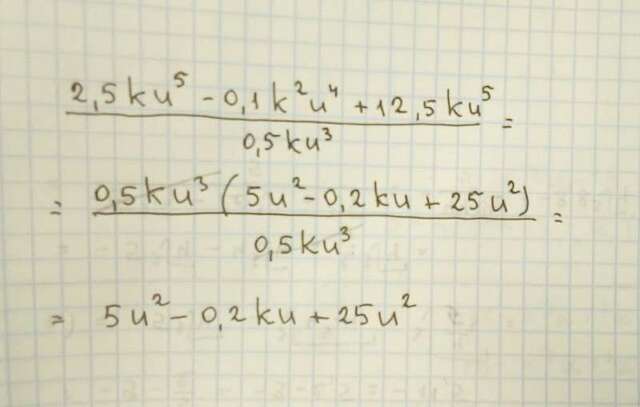 2,5ku⁵ - 0,1k²u⁴ + 12,5ku⁵ =
0,5ku³
= 0,5ku³ (5u² - 0,2ku + 25u²) =
0,5ku³
= 5u² - 0,2ku + 25u²